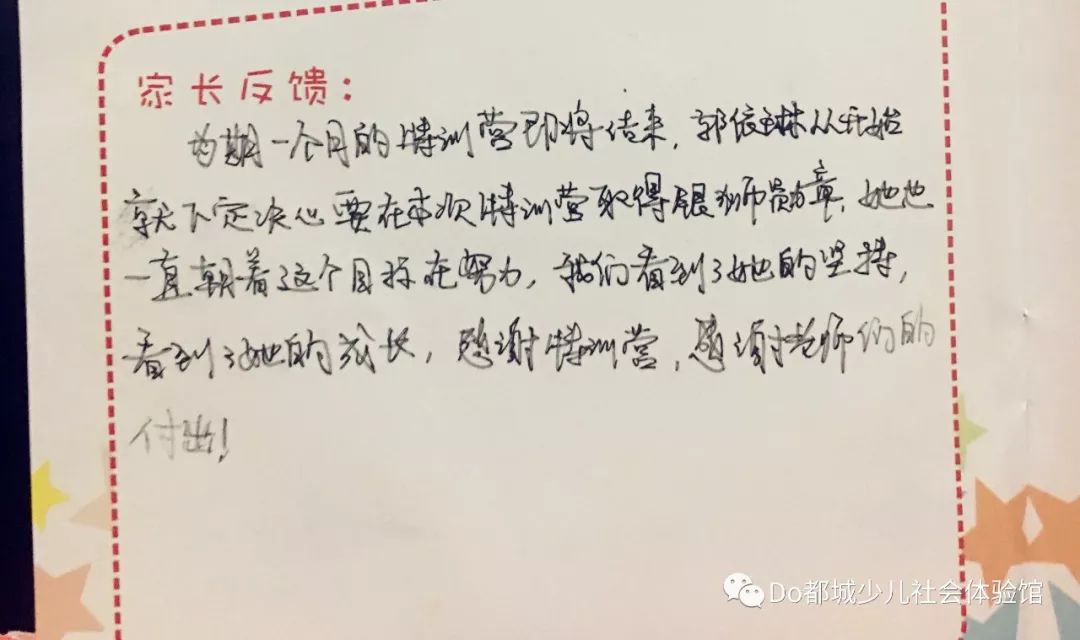 家长反馈：
为期一个月的特训营即将结束，郭依琳从开始
就下定决心要在本次特训营取得银狮勋章，她也
一直朝着这个目标在努力，我们看到了她的坚持，
看到了她的成长，感谢特训营，感谢老师们的
付出！
Do都城少儿社会体验馆